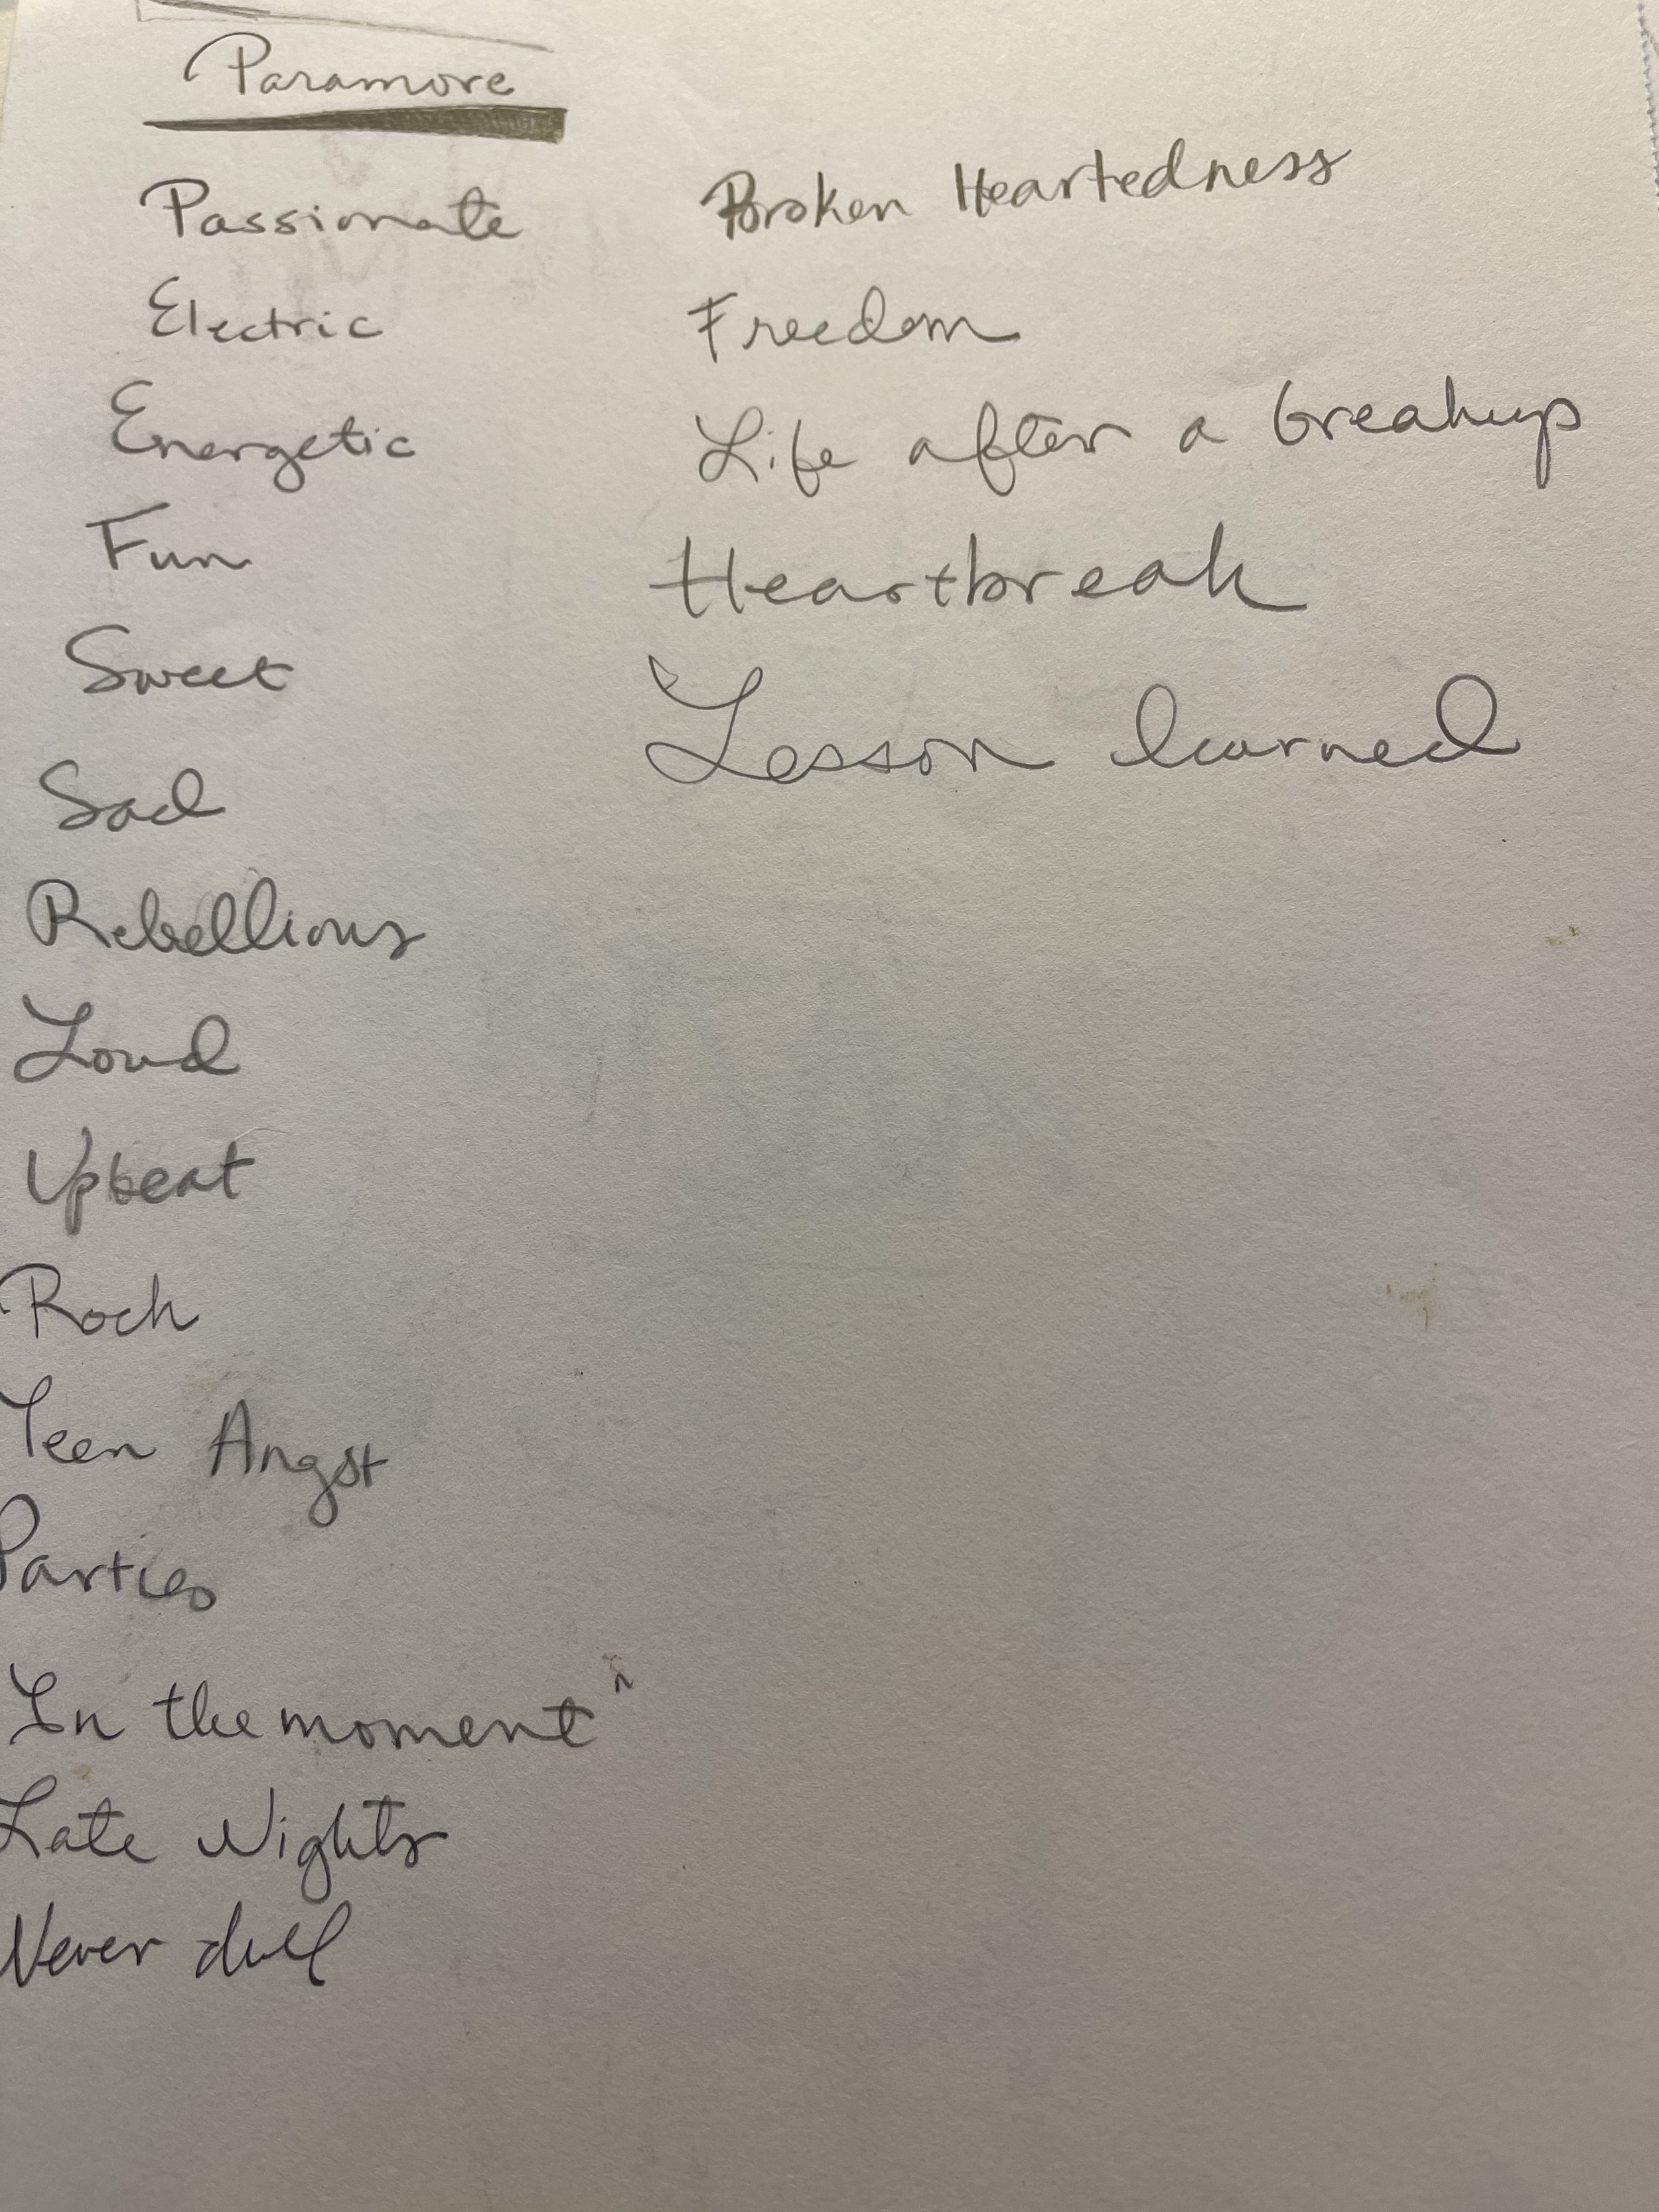 Paramore
Passionate
Electric
Energetic
Fun
Sweet
Sad
Rebellious
Loud
Upbeat
Rock
Teen Angst
Parties
In the moment"
Late Nights
Never dull
Broken Heartedness
Freedom
Life after a breakup
Heartbreak
Lesson learned